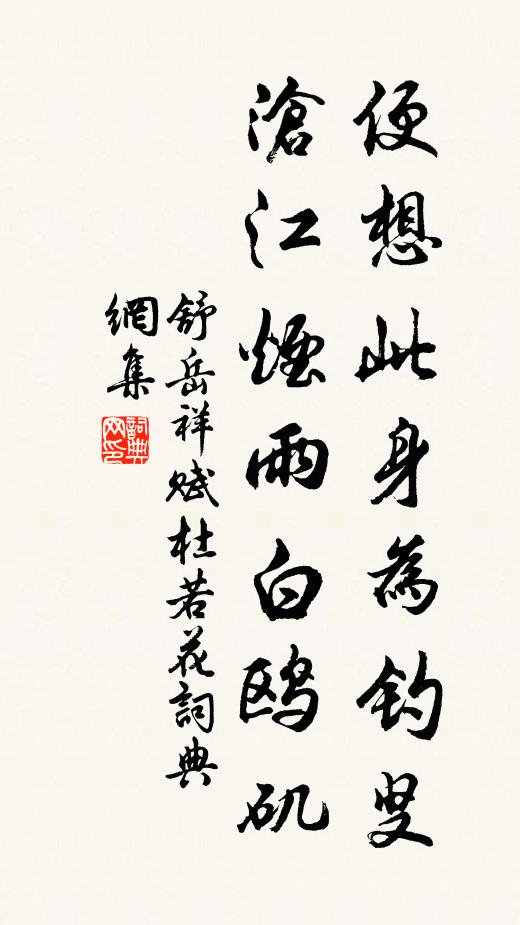 便想此身為釣叟
滄江煙雨白鷗矶
舒岳祥赋杜若花詞典
網集
詞典网印